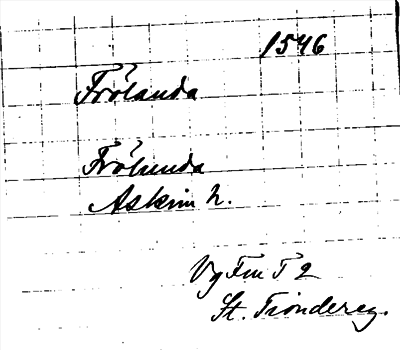 1546
Frölanda
Frölunda
Askim h.
Vg Fm T 2
St. Tiondereg.